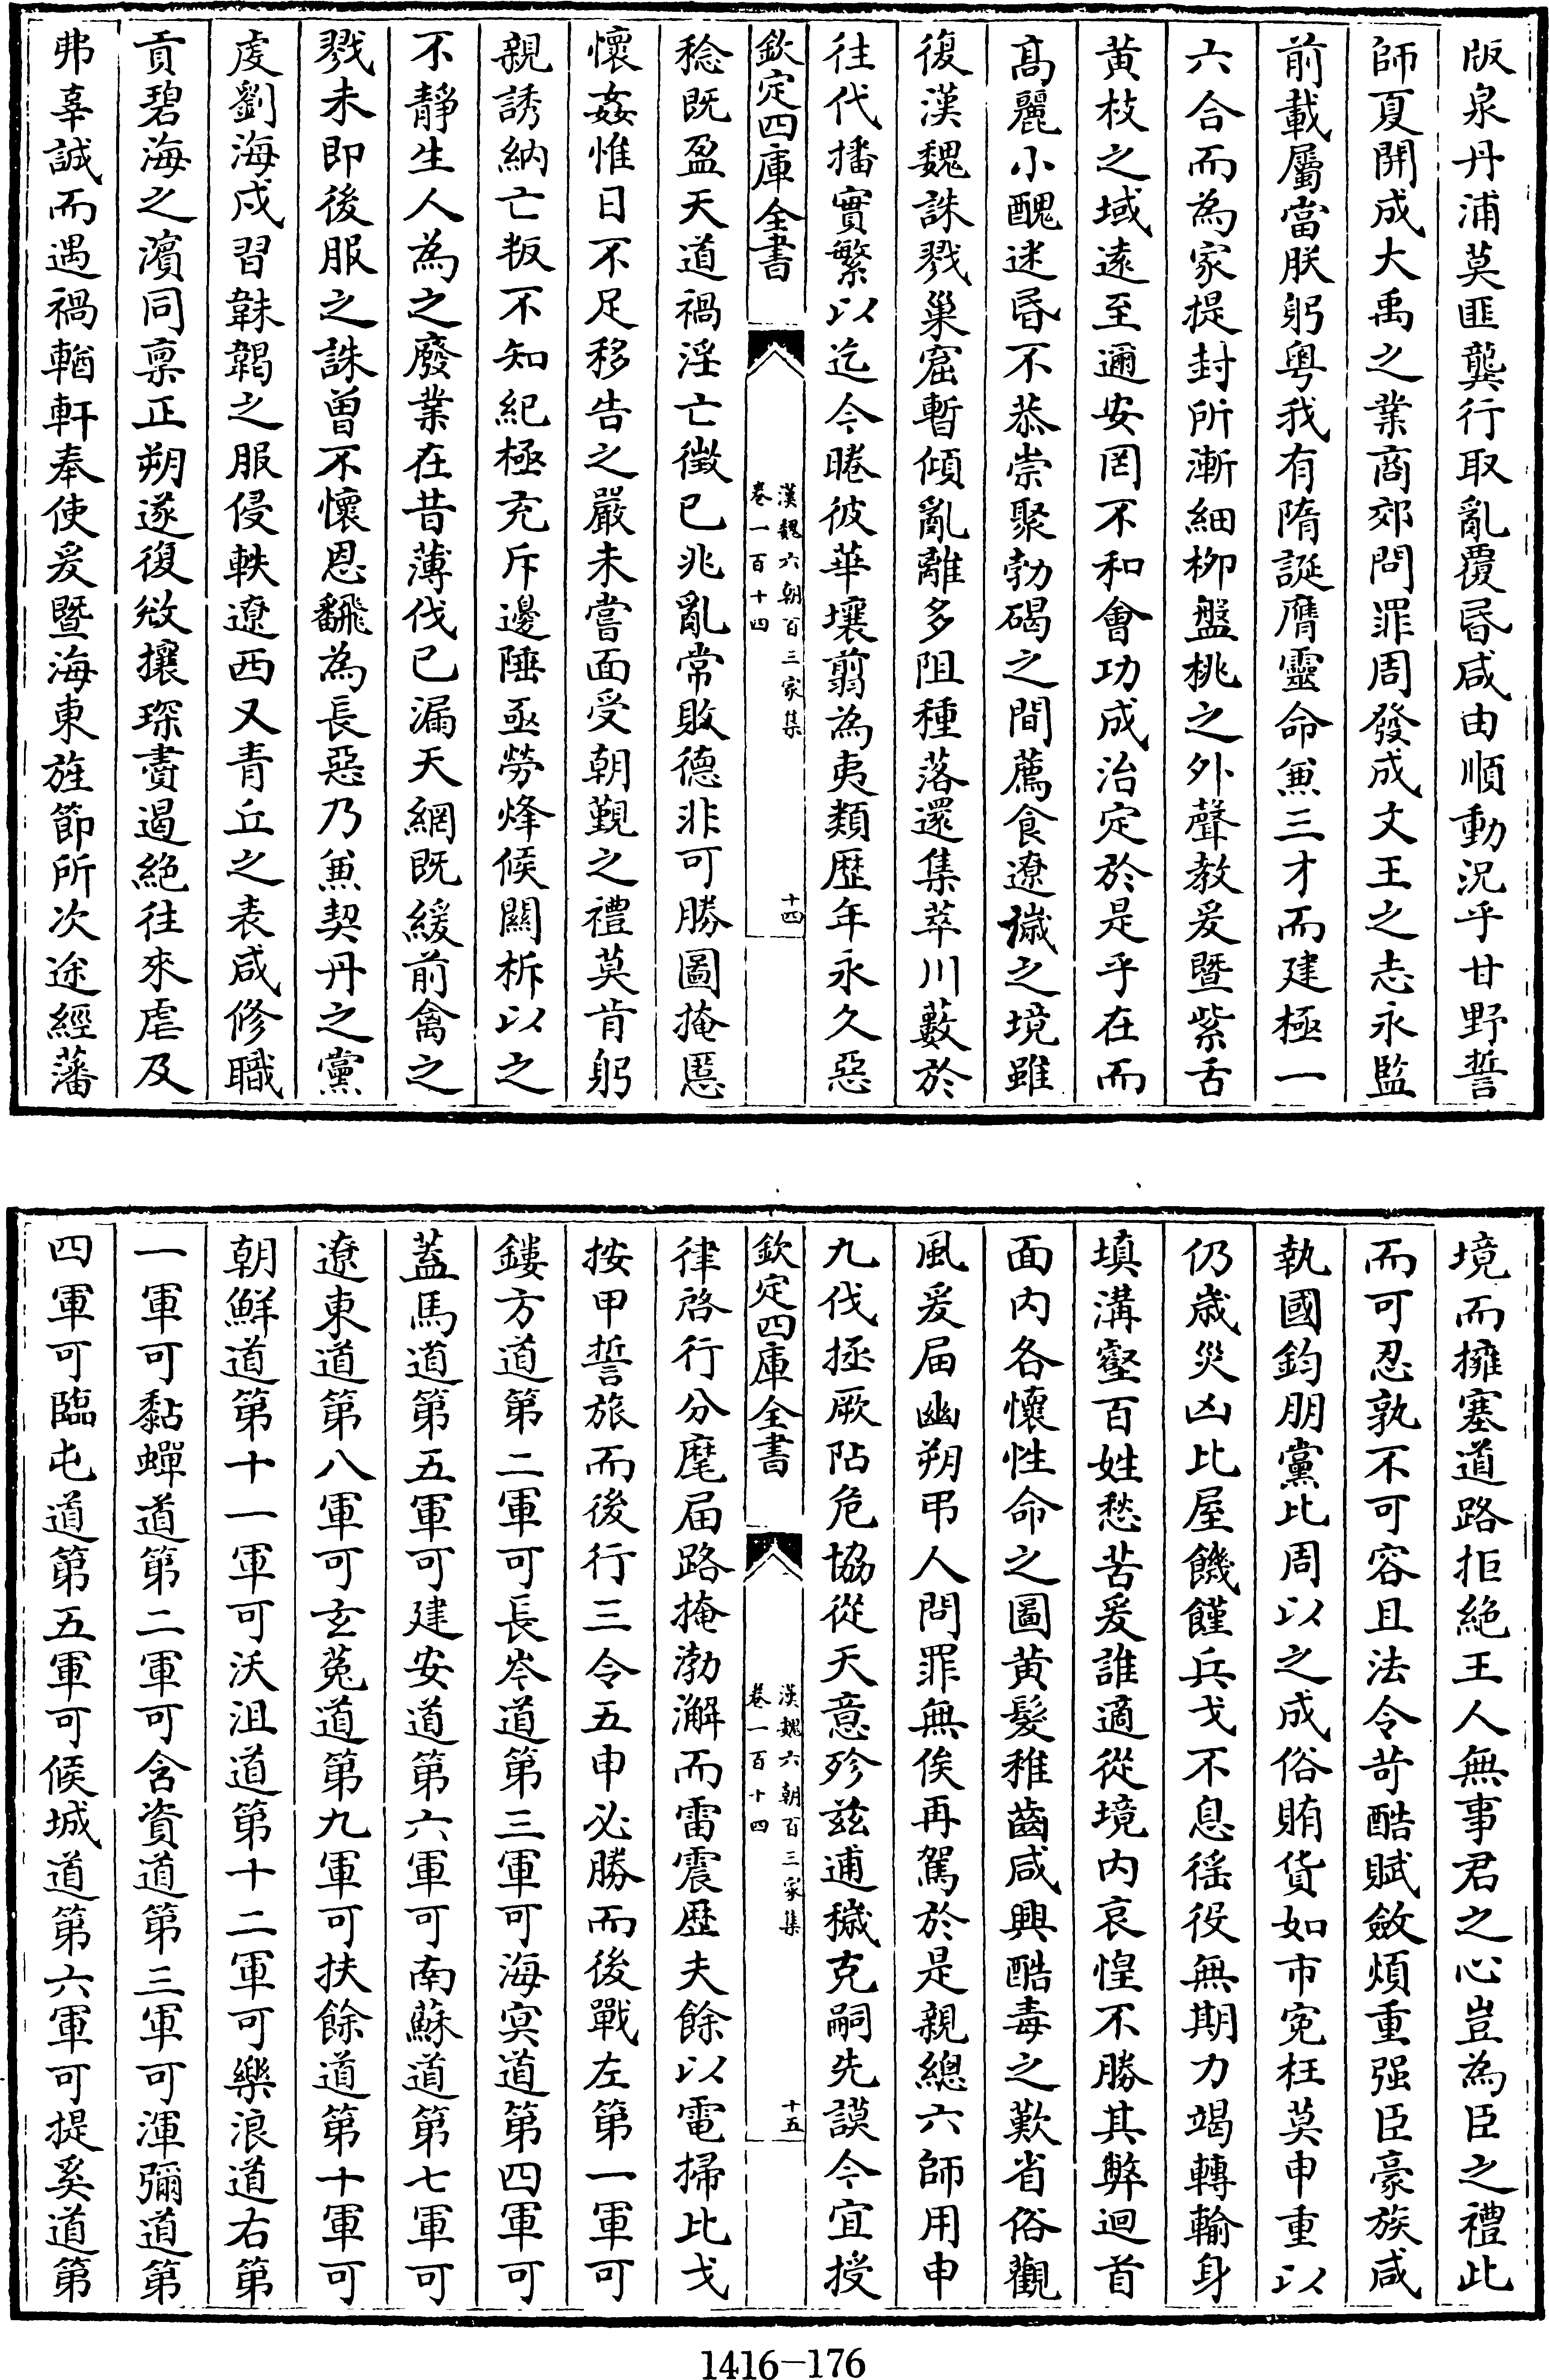 版泉丹浦莫匪龔行取亂覆昬咸由順動況乎甘野誓
師夏開成大禹之業商郊問罪周發成文王之志永監
前載屬當朕躬粤我有隋誕膺靈命兼三才而建極一
六合而為家提封所漸細柳盤桃之外聲教爰暨紫舌
黄枝之域遠至邇安罔不和會功成治定於是乎在而
髙麗小醜迷昬不恭崇聚勃碣之間薦食遼濊之境雖
復漢魏誅戮巢窟暫傾亂離多阻種落還集萃川藪於
往代播實繁以迄今睠彼華壤翦為夷類歴年永久惡
欽定四庫全書
漢魏六朝百三家集
卷一百十四
十四
稔既盈天道禍淫亡徵已兆亂常敗德非可勝圖掩慝
懷姦惟日不足移告之嚴未嘗面受朝覲之禮莫肯躬
親誘納亡叛不知紀極充斥邊陲亟勞烽候關柝以之
不靜生人為之廢業在昔薄伐已漏天網既緩前禽之
戮未即後服之誅曽不懷恩飜為長惡乃兼契丹之黨
虔劉海戍習靺鞨之服侵軼遼西又青丘之表咸修職
貢碧海之濱同稟正朔遂復敚攘琛賮遏絶往來虐及
弗辜誠而遇禍輶軒奉使爰暨海東旌節所次途經藩
境而擁塞道路拒絶王人無事君之心豈為臣之禮此
而可忍孰不可容且法令苛酷賦斂煩重强臣豪族咸
執國鈞朋黨比周以之成俗賄貨如市寃枉莫申重以
仍歳災凶比屋饑饉兵戈不息徭役無期力竭轉輸身
填溝壑百姓愁苦爰誰適從境内哀惶不勝其弊迴首
面内各懷性命之圖黄髮稚齒咸興酷毒之歎省俗觀
風爰届幽朔弔人問罪無俟再駕於是親總六師用申
九伐拯厥阽危協從天意殄兹逋穢克嗣先謨今宜授
欽定四庫全書
漢魏六朝百三家集
卷一百十四
十五
律啓行分麾届路掩渤澥而雷震歴夫餘以電掃比戈
按甲誓旅而後行三令五申必勝而後戰左第一軍可
鏤方道第二軍可長岑道第三軍可海冥道第四軍可
蓋馬道第五軍可建安道第六軍可南蘇道第七軍可
遼東道第八軍可玄菟道第九軍可扶餘道第十軍可
朝鮮道第十一軍可沃沮道第十二軍可樂浪道右第
一軍可黏蟬道第二軍可含資道第三軍可渾彌道第
四軍可臨屯道第五軍可候城道第六軍可提奚道第
1416-176